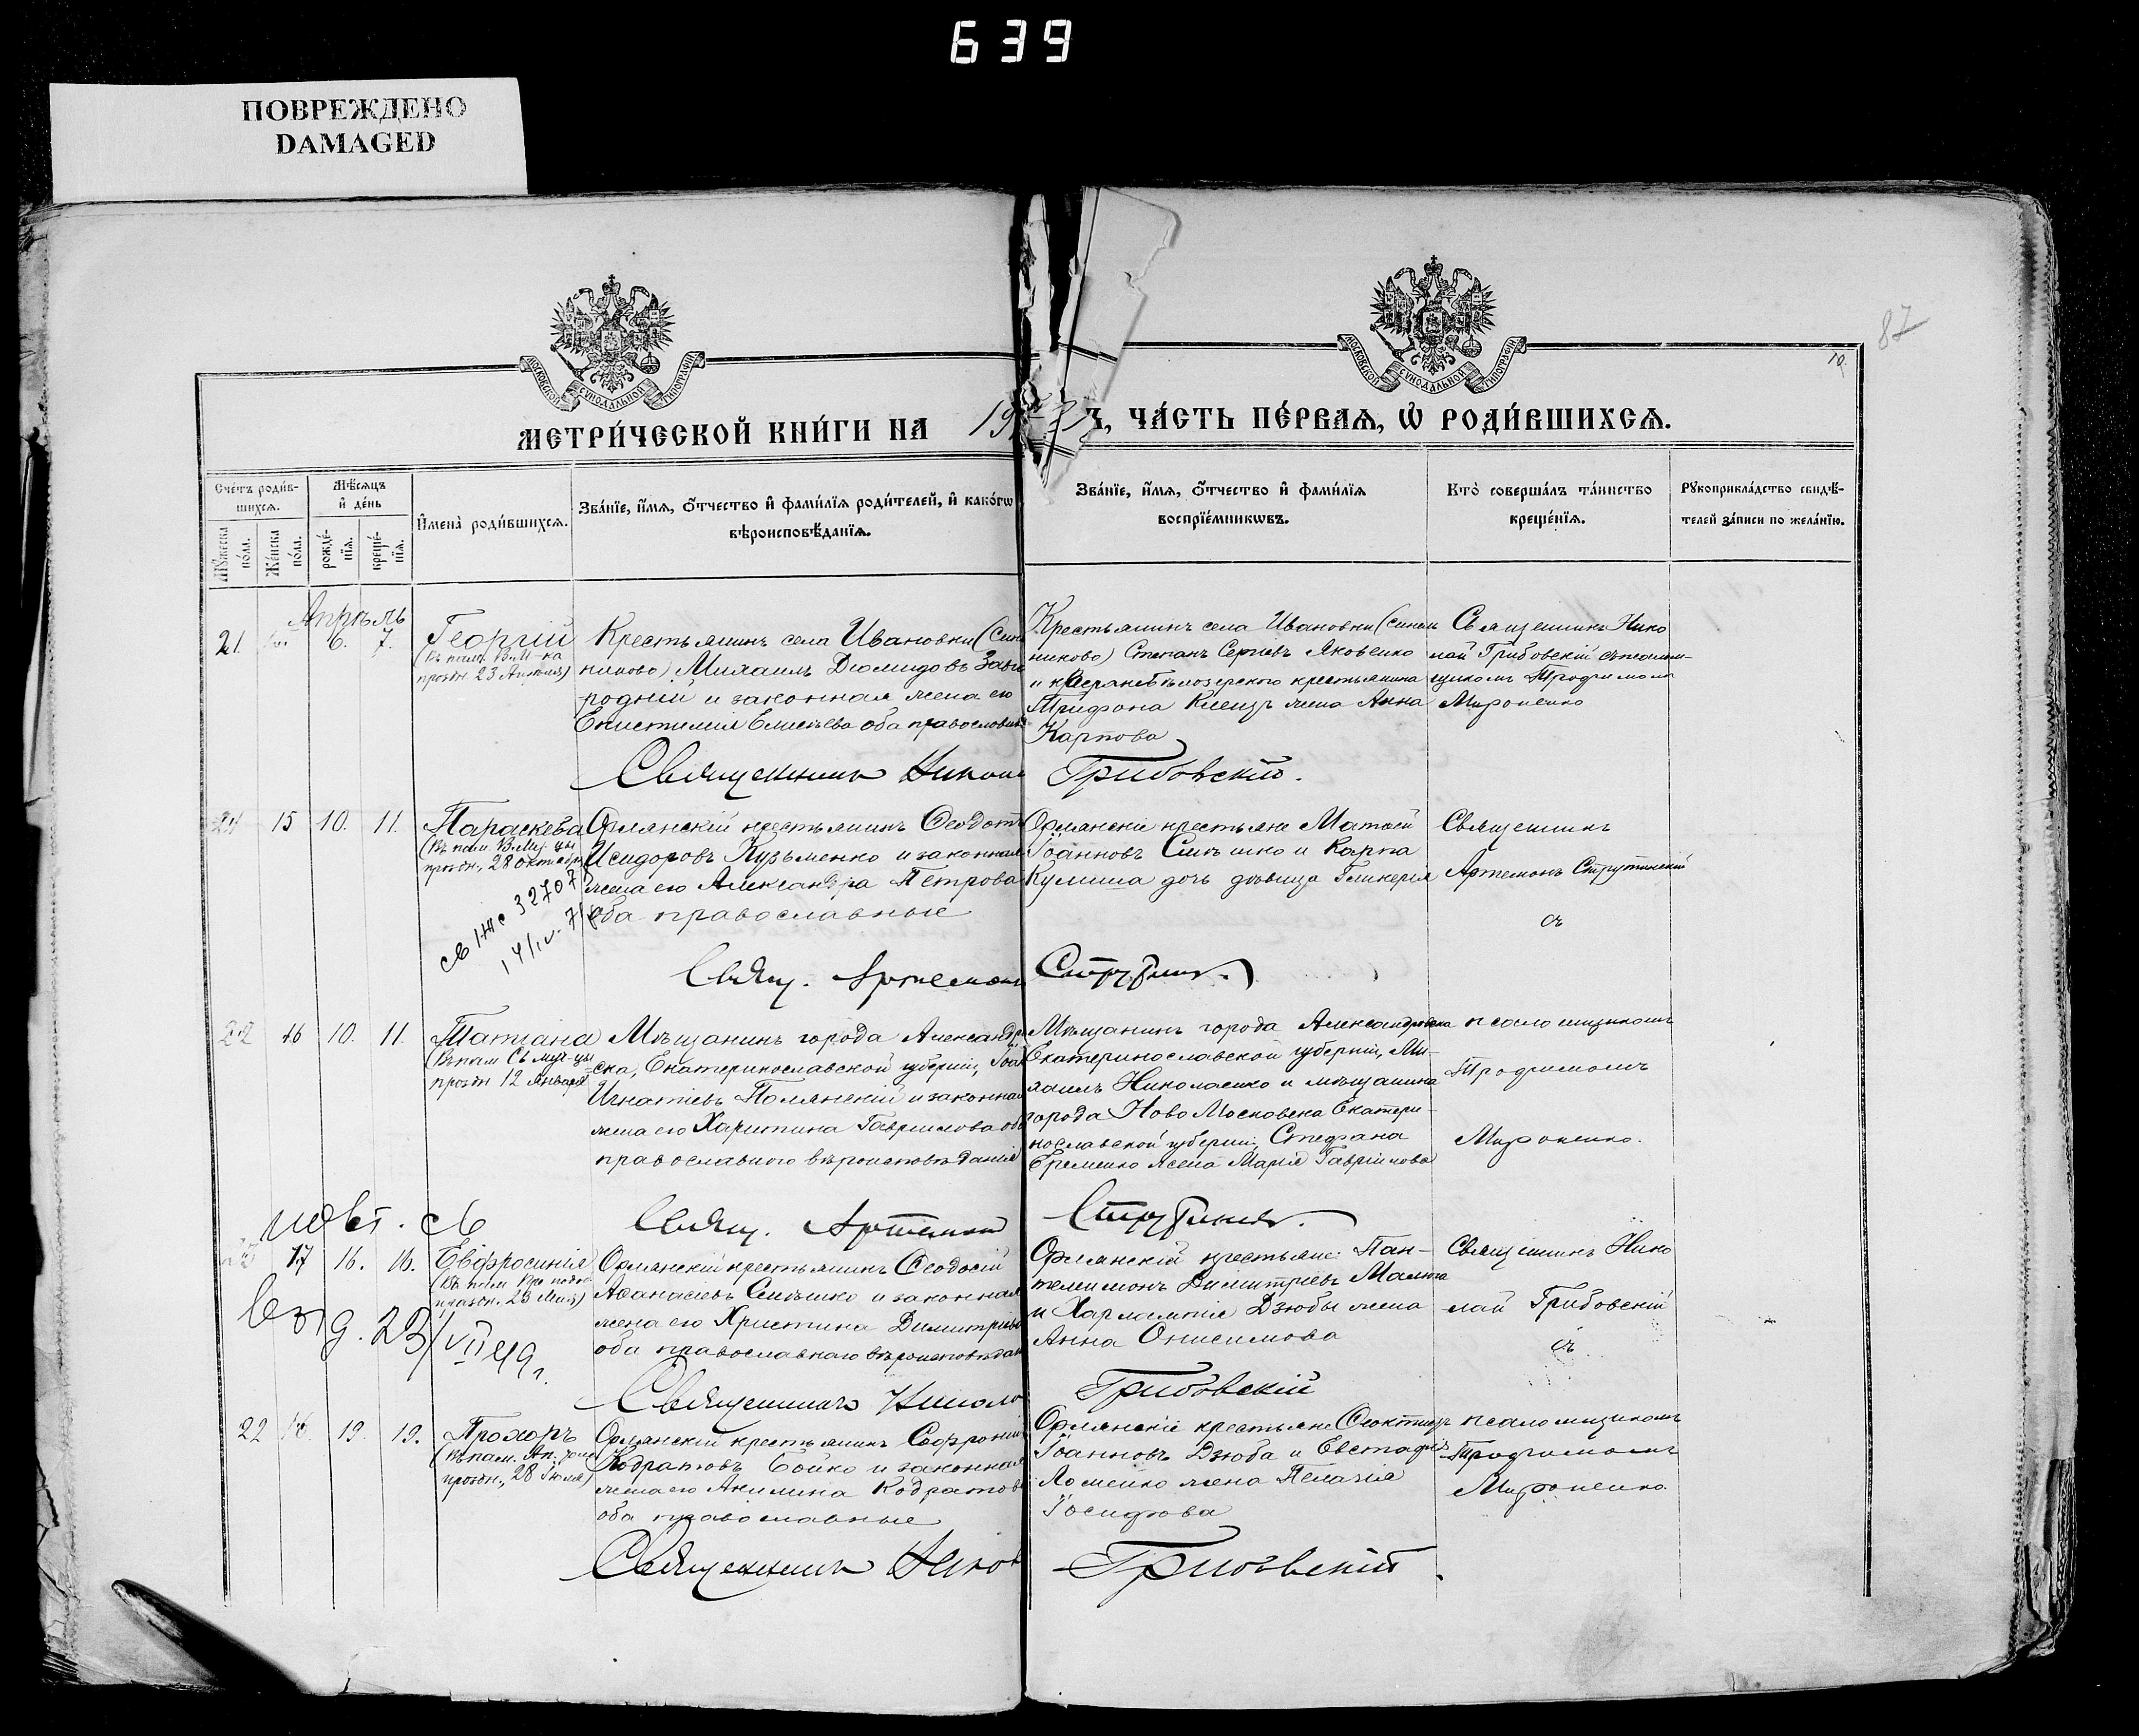 639
ПОВРЕЖДЕНО
DAMAGED
87
10.
МОСКОВСКОЙ СУНОДАЛЬНОЙ ТИПОГРАФІИ
МОСКОВСКОЙ СУНОДАЛЬНОЙ ТИПОГРАФІИ
МЕТРИ́ЧЕСКОЙ КНИ́ГИ НА 19
Ъ, ЧА́СТЬ ПЕ́РВАЯ, Ѡ РОДИ́ВШИХСЯ.
Сче́тъ роди́в-
шихся.
Мѣ́сяцъ
и̂ де́нь
Му́жеска по́ла.
Же́нска по́ла.
рожде́-
нія.
креще́-
нія.
И̂мена̀ роди́вшихся.
Зва́нїе, и̂́мя, о̂́тчество и̂ фами́лїя роди́телей, и̂ како́гѡ
вѣроисповѣ́данїя.
Зва́нїе, и̂́мя, о̂́тчество и̂ фами́лїя
воспрїе́мникѡвъ.
Кто̀ соверша́лъ та́инство
креще́нїя.
Рукоприкла́дство свидѣ́-
телей за́писи по жела́нїю.
Апрѣль
21. 6. 7.
Георгій
праздн. 23 Апрѣля)
Крестьянинъ села Ивановки (Син
никово) Михаилъ Диомидовъ
родній и законная жена его
Епистимія оба православн
Крестьянинъ села Ивановки (синель
никово) Степанъ Сергѣевъ Яковенко
и крестьянина
Трифона Клещъ жена Анна
Карпова
Священникъ Нико
лай Грибовскій съ псалом-
щикомъ Трофимомъ
Мироненко
Священникъ Никола
Грибовскій.
15 10. 11.
Параскева
(Въ пам. В.Муч-цы
праздн. 28 октября)
Орлянскій крестьянинъ Ѳеодотъ
Исидоровъ Кузьменко и законная
жена его Александра Петрова
оба православные
Орлянскіе крестьяне Матѳей
Іоанновъ Смѣшко и Карпа
Кулиша дочь дѣвица Гликерія
Священникъ
Артемонъ Струтинскій
съ
32707
14/IV.71
Свящ. Артемонъ
Струтинск.
22 16 10. 11.
Татіана
(Въ пам Св муч-цы
праздн 12 Января)
Мѣщанинъ города Александр
ска, Екатеринославской губерніи, Іоан
Игнатіевъ Полянскій и законная
жена его Харитина Гавриилова оба
православного вѣроисповѣданія
Мѣщанинъ города Александровска
Екатеринославской губерніи, Ми-
хаилъ Николаенко и мѣщанина
города Ново Московска Екатери-
нославской губерніи, Стефана
Еременко жена Марія Гавріилова
псаломщикомъ
Трофимомъ
Мироненко.
Свящ. Артемонъ
Струтинск.
повт. св
17 16. 16.
Евфросинія
праздн. 23 Мая)
Орлянскій крестьянинъ Ѳеодосій
Аѳанасіевъ Смѣшко и законная
жена его Христина Димитріева
оба православнаго вѣроисповѣдан
Орлянскій крестьяне: Пан-
телеимонъ Димитріевъ Малюга
и Харлампія Дзюбы жена
Анна Онисимова
Священникъ Нико
лай Грибовскій
съ
выд. 23/VII 49 г.
Священникъ Никола
Грибовскій
22 19. 19.
Прохоръ
праздн., 28 Іюля)
Орлянскій крестьянинъ Софроній
Кодратовъ Бойко и законная
жена его Акилина Кодратова
оба православные
Орлянскіе крестьяне Ѳеоктистъ
Іоанновъ Дзюба и Евстафія
Ломейко жена Пелагія
Іосифова
псаломщикомъ
Трофимомъ
Мироненко.
Священникъ Никол
Грибовскій.